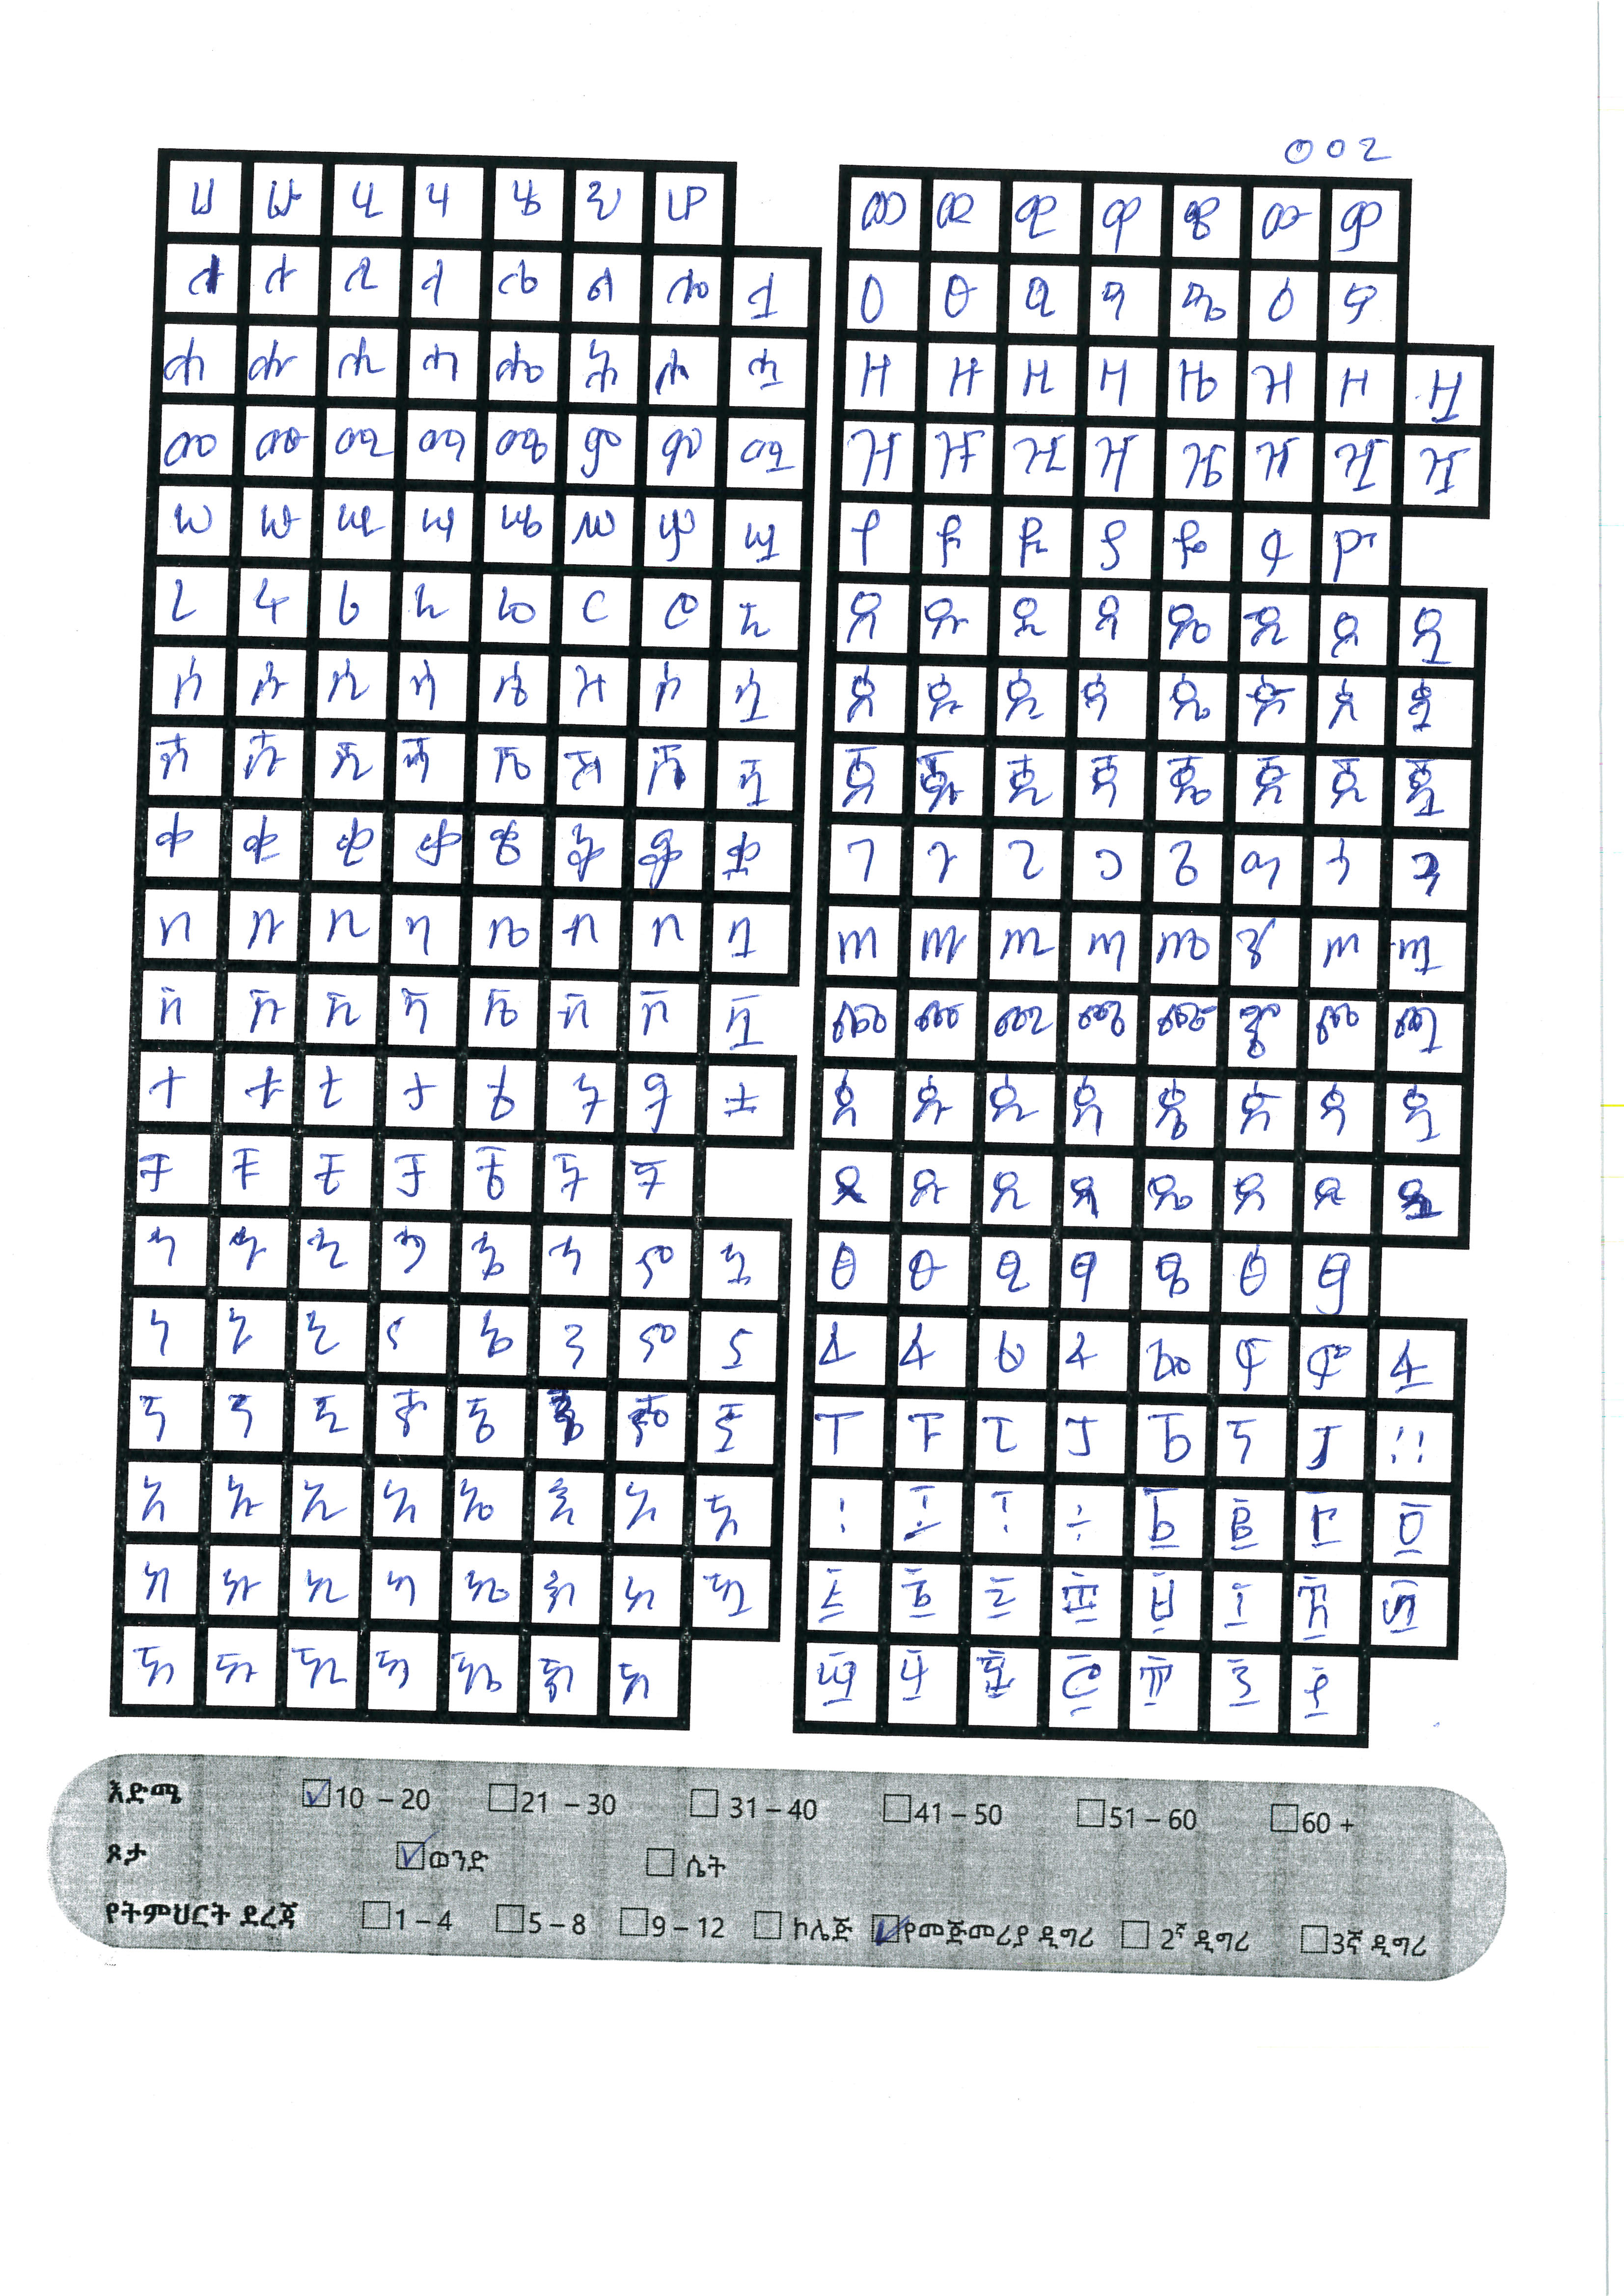 002
ሀ ሁ ሂ ሃ ሄ ህ ሆ
ለ ሉ ሊ ላ ሌ ል ሎ ሏ
ሐ ሑ ሒ ሓ ሔ ሕ ሖ ሗ
መ ሙ ሚ ማ ሜ ም ሞ ሟ
ሠ ሡ ሢ ሣ ሤ ሥ ሦ ሧ
ረ ሩ ሪ ራ ሬ ር ሮ ሯ
ሰ ሱ ሲ ሳ ሴ ስ ሶ ሷ
ሸ ሹ ሺ ሻ ሼ ሽ ሾ ሿ
ቀ ቁ ቂ ቃ ቄ ቅ ቆ ቋ
በ ቡ ቢ ባ ቤ ብ ቦ ቧ
ቨ ቩ ቪ ቫ ቬ ቭ ቮ ቯ
ተ ቱ ቲ ታ ቴ ት ቶ ቷ
ቸ ቹ ቺ ቻ ቼ ች ቾ
ኀ ኁ ኂ ኃ ኄ ኅ ኆ ኋ
ነ ኑ ኒ ና ኔ ን ኖ ኗ
ኘ ኙ ኚ ኛ ኜ ኝ ኞ ኟ
አ ኡ ኢ ኣ ኤ እ ኦ ኧ
ከ ኩ ኪ ካ ኬ ክ ኮ ኳ
ኸ ኹ ኺ ኻ ኼ ኽ ኾ
ወ ዉ ዊ ዋ ዌ ው ዎ
ዐ ዑ ዒ ዓ ዔ ዕ ዖ
ዘ ዙ ዚ ዛ ዜ ዝ ዞ ዟ
ዠ ዡ ዢ ዣ ዤ ዥ ዦ ዧ
የ ዩ ዪ ያ ዬ ይ ዮ
ደ ዱ ዲ ዳ ዴ ድ ዶ ዷ
ጀ ጁ ጂ ጃ ጄ ጅ ጆ ጇ
ገ ጉ ጊ ጋ ጌ ግ ጎ ጓ
ጠ ጡ ጢ ጣ ጤ ጥ ጦ ጧ
ጨ ጩ ጪ ጫ ጬ ጭ ጮ ጯ
ጰ ጱ ጲ ጳ ጴ ጵ ጶ ጷ
ጸ ጹ ጺ ጻ ጼ ጽ ጾ ጿ
ፀ ፁ ፂ ፃ ፄ ፅ ፆ
ፈ ፉ ፊ ፋ ፌ ፍ ፎ ፏ
ፐ ፑ ፒ ፓ ፔ ፕ ፖ ።
፡ ፤ ፣ ÷ ፩ ፪ ፫ ፬
፭ ፮ ፯ ፰ ፱ ፲ ፳ ፴
፵ ፶ ፷ ፸ ፹ ፺ ፻
እድሜ 10 – 20 21 – 30 31 – 40 41 – 50 51 – 60 60 +
ጾታ ወንድ ሴት
የትምህርት ደረጃ 1 – 4 5 – 8 9 – 12 ኮሌጅ የመጅመሪያ ዲግሪ 2ኛ ዲግሪ 3ኛ ዲግሪ